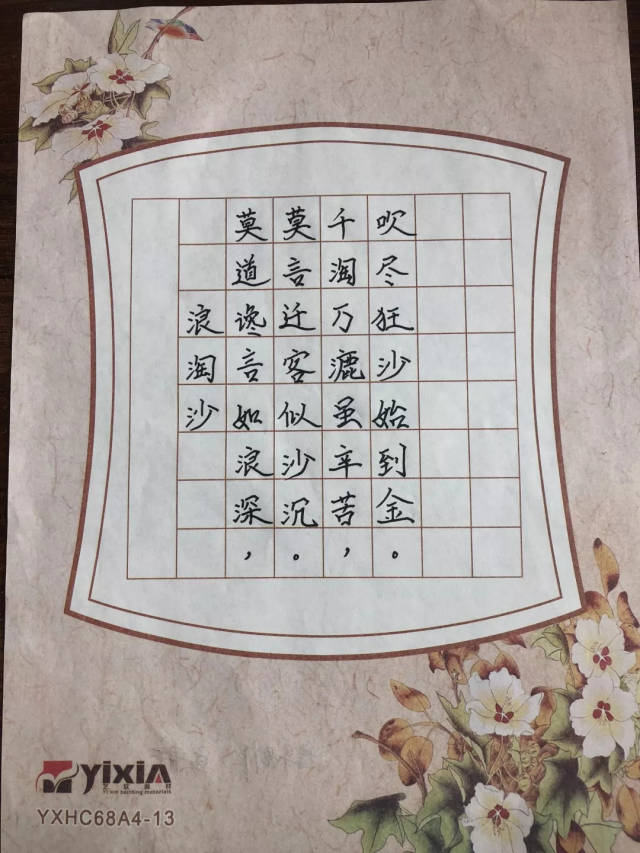 浪淘沙
莫道谗言如浪深，
莫言迁客似沙沉。
千淘万漉虽辛苦，
吹尽狂沙始到金。
YixiA
Yi xin building materials
YXHC68A4-13